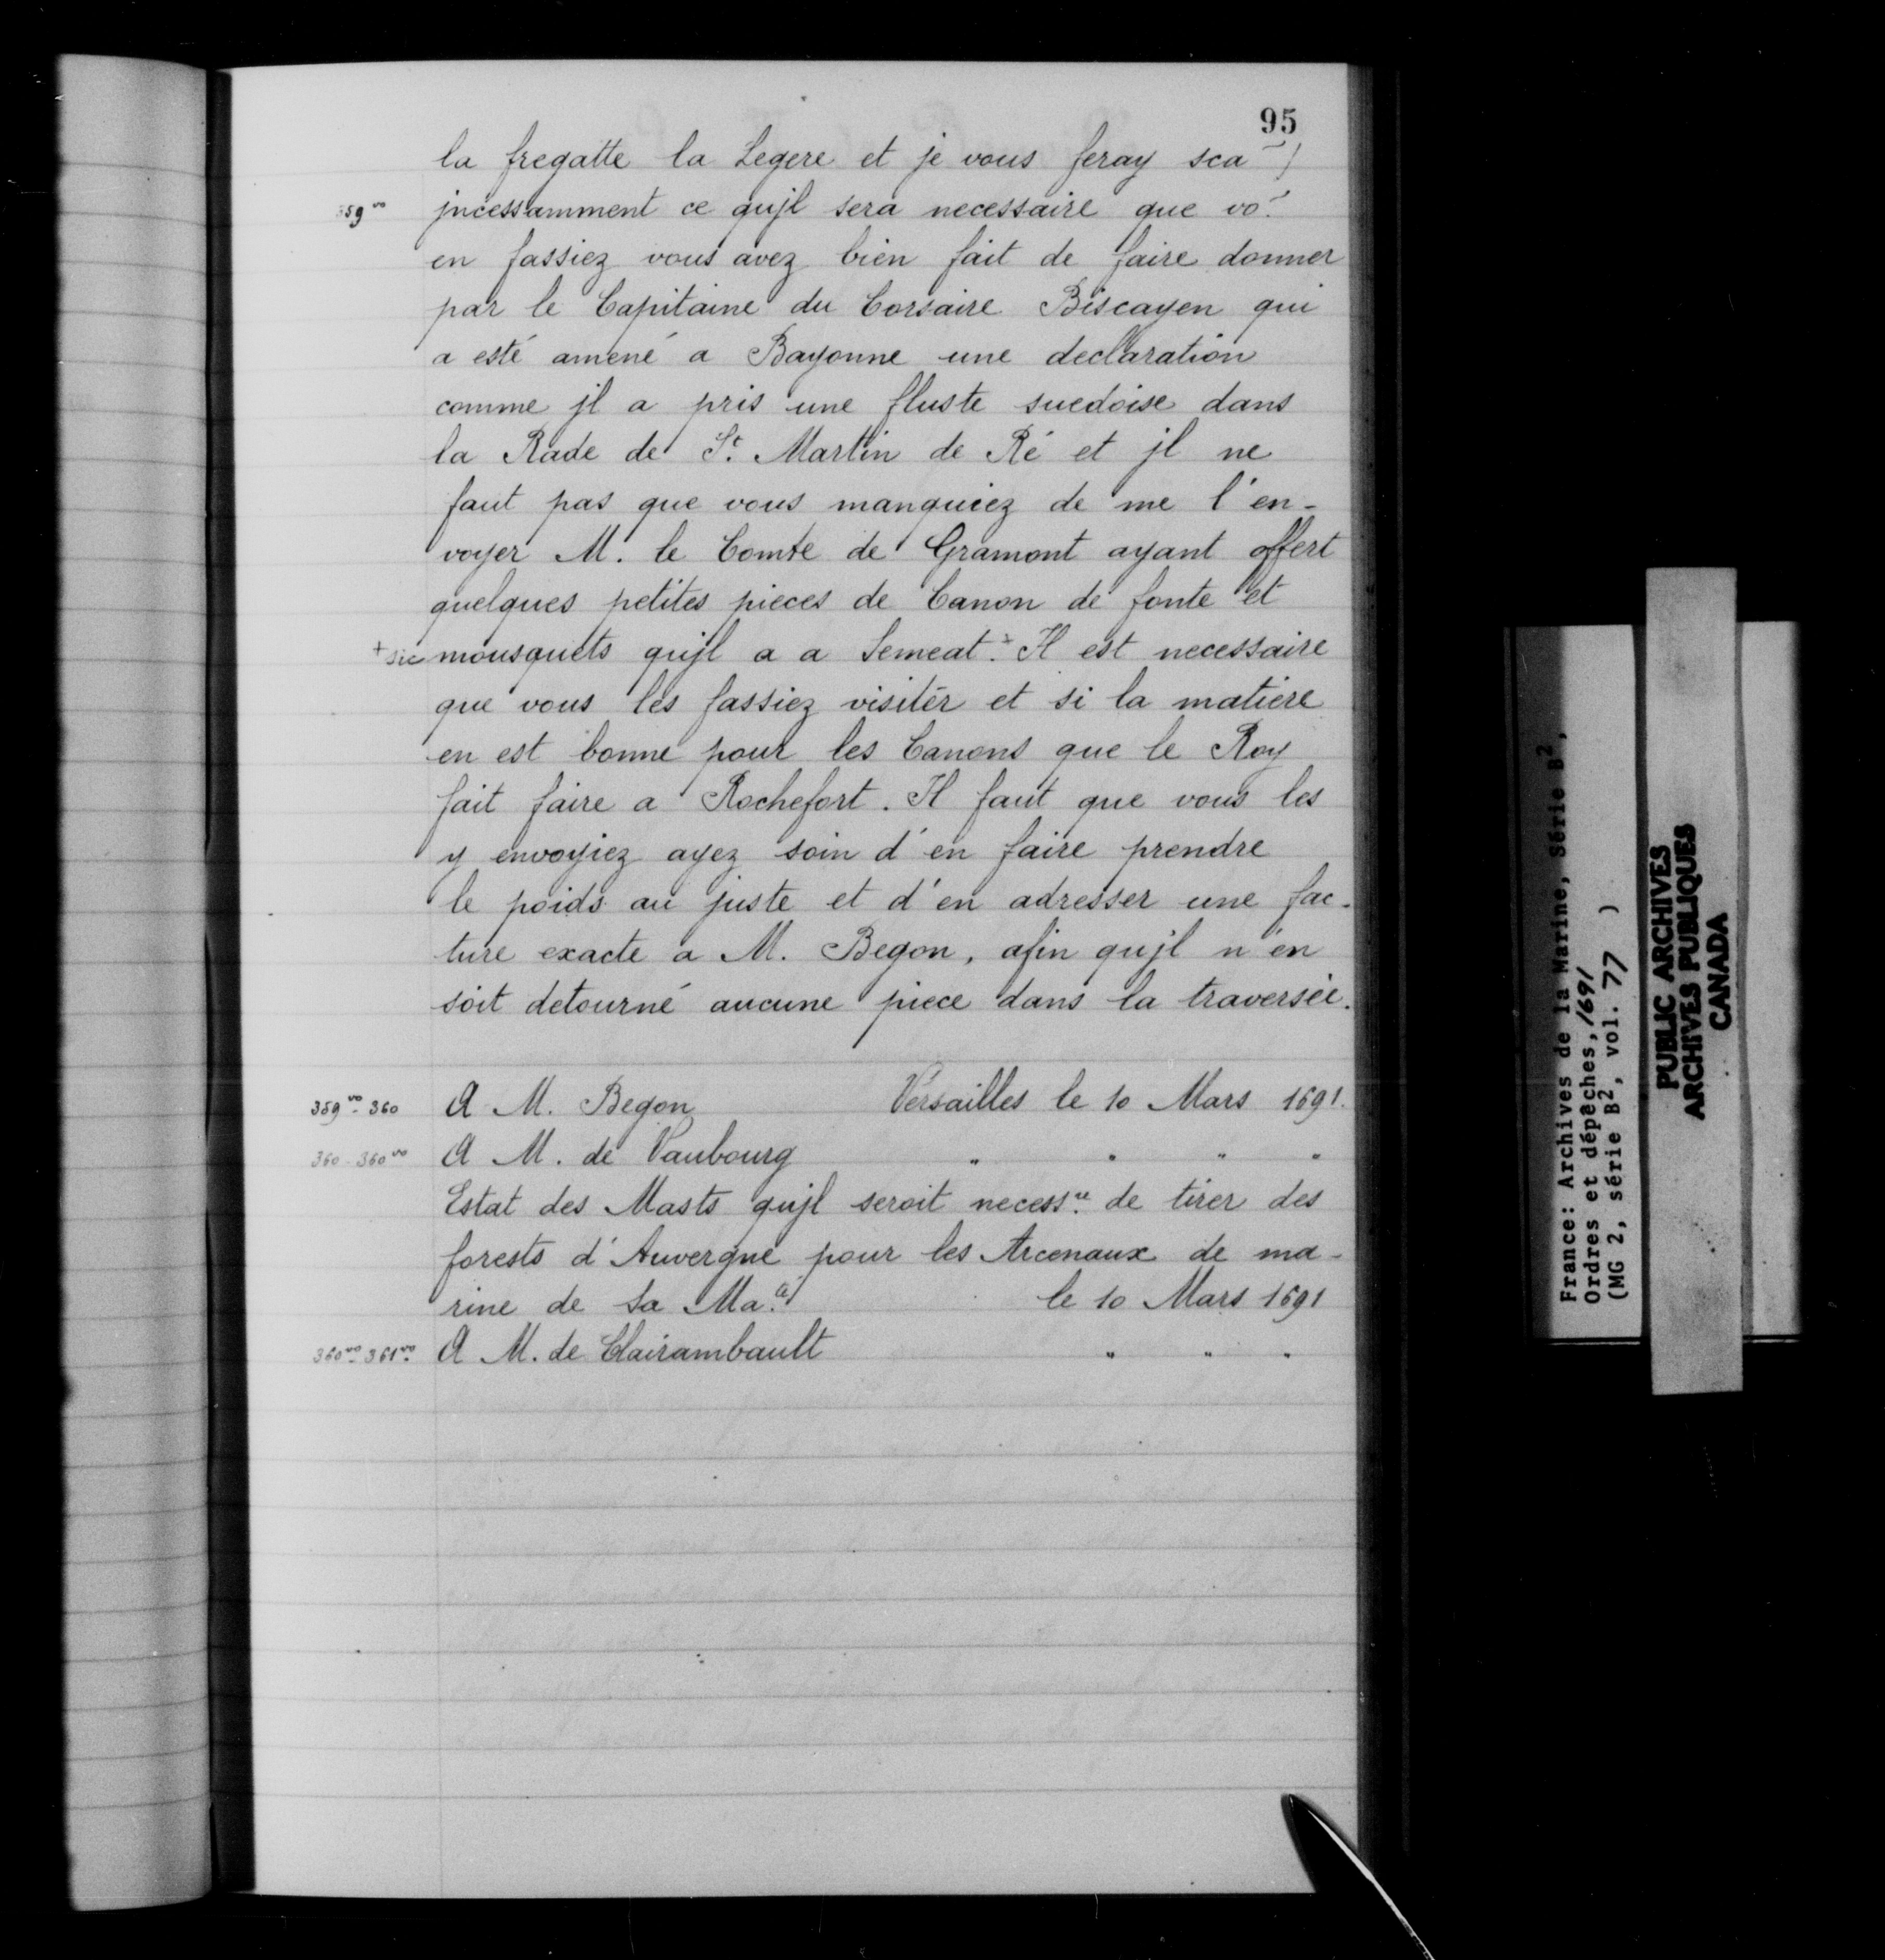 95
la fregatte la Legere et je vous feray sca
359 vo jncessamment ce qujl sera necessaire que vo.
en fassiez vous avez bien fait de faire donner
par le Capitaine du Corsaire Biscayen qui
a esté amené a Bayonne une declaration
comme jl a pris une fluste suedoise dans
la Rade de St. Martin de Ré et jl ne
faut pas que vous manquiez de me l'en-
voyer M. le Comte de Gramont ayant offert
quelques petites pieces de Canon de fonte et
+ sic mousquets qujl a a Semeat.+ Il est necessaire
que vous les fassiez visiter et si la matiere
en est bonne pour les Canons que le Roy
fait faire a Rochefort. Il faut que vous les
y envoyiez ayez soin d'en faire prendre
le poids au juste et d'en adresser une fac-
ture exacte a M. Begon, afin qujl n'en
soit detourné aucune piece dans la traversée.
359 vo - 360 A M. Begon Versailles le 10 Mars 1691.
360 - 360 vo A M. de Vaubourg " " " "
Estat des Masts qujl seroit necess.re de tirer des
forests d'Auvergne pour les Arcenaux de ma-
rine de Sa Ma.té le 10 Mars 1691
360 vo - 361 vo A M. de Clairambault " " "
France: Archives de la Marine, Série B2,
Ordres et dépêches, 1691
(MG 2, série B2, vol. 77 )
PUBLIC ARCHIVES
ARCHIVES PUBLIQUES
CANADA